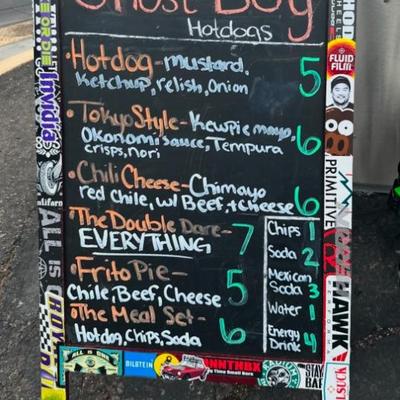 Ghost Boy
Hotdogs
Hotdog-mustard,
ketchup, relish, Onion 5
Tokyo Style-Kewpie mayo,
Okonomi sauce, Tempura
crisps, nori 6
Chili Cheese-Chimayo
red Chile, w/ Beef, + cheese 6
The Double Dare-
EVERYTHING 7
Frito Pie-
Chile, Beef, Cheese 5
The Meal Set-
Hotdog, Chips, Soda 6
Chips 1
Soda 2
Mexican
Soda 3
Water 1
Energy
Drink 4
E OR DIE
Invidia
ALL IS O
FLUID
FILM
PRIMITIVE
HAWK
ALL IS ONE
BILSTEIN
STAY